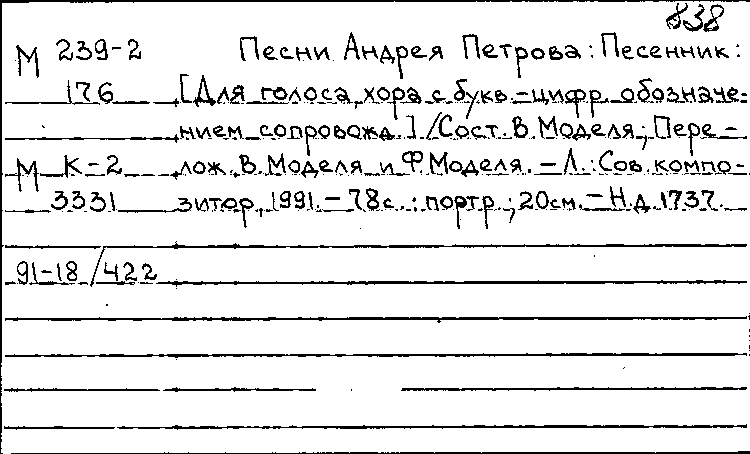 838
М 239-2 Песни Андрея Петрова: Песенник:
176 [Для голоса, хора с букв.-цифр. обозначе-
нием сопровожд.] / Сост. В. Моделя; Пере-
М К-2 лож. В. Моделя и Ф. Моделя. – Л.: Сов. компо-
3331 зитор, 1991. – 78с.: портр.; 20см. – Н.д. 1737.
91-18/422